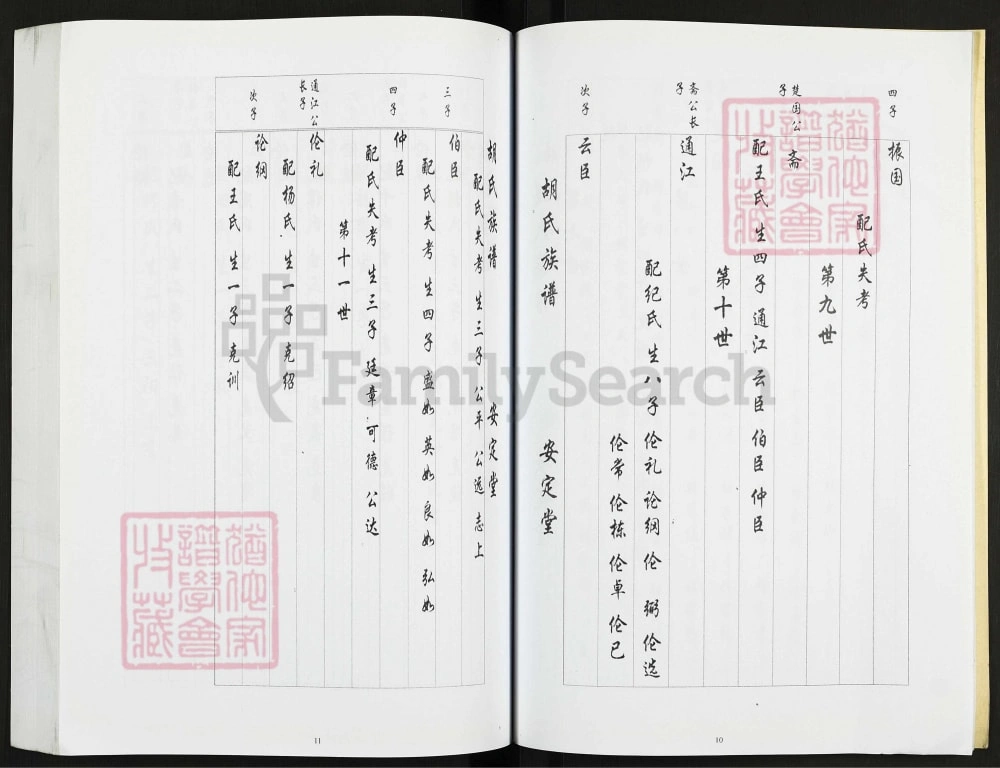 四子
振国
配氏失考
第九世
楚国公子
斋
配王氏 生四子 通江 云臣 伯臣 仲臣
第十世
斋公长子
通江
配纪氏 生八子 伦礼 论纲 伦弼 伦选
伦常 伦栋 伦卓 伦已
次子
云臣
胡氏族谱 安定堂
10
胡氏族谱 安定堂
配氏失考 生三子 公平 公远 志上
三子
伯臣
配氏失考 生四子 盛如 英如 良如 弘如
四子
仲臣
配氏失考 生三子 廷章 可德 公达
第十一世
通江公长子
伦礼
配杨氏 生一子 克绍
次子
论纲
配王氏 生一子 克训
11
猶他家譜學會收藏
猶他家譜學會收藏
FamilySearch